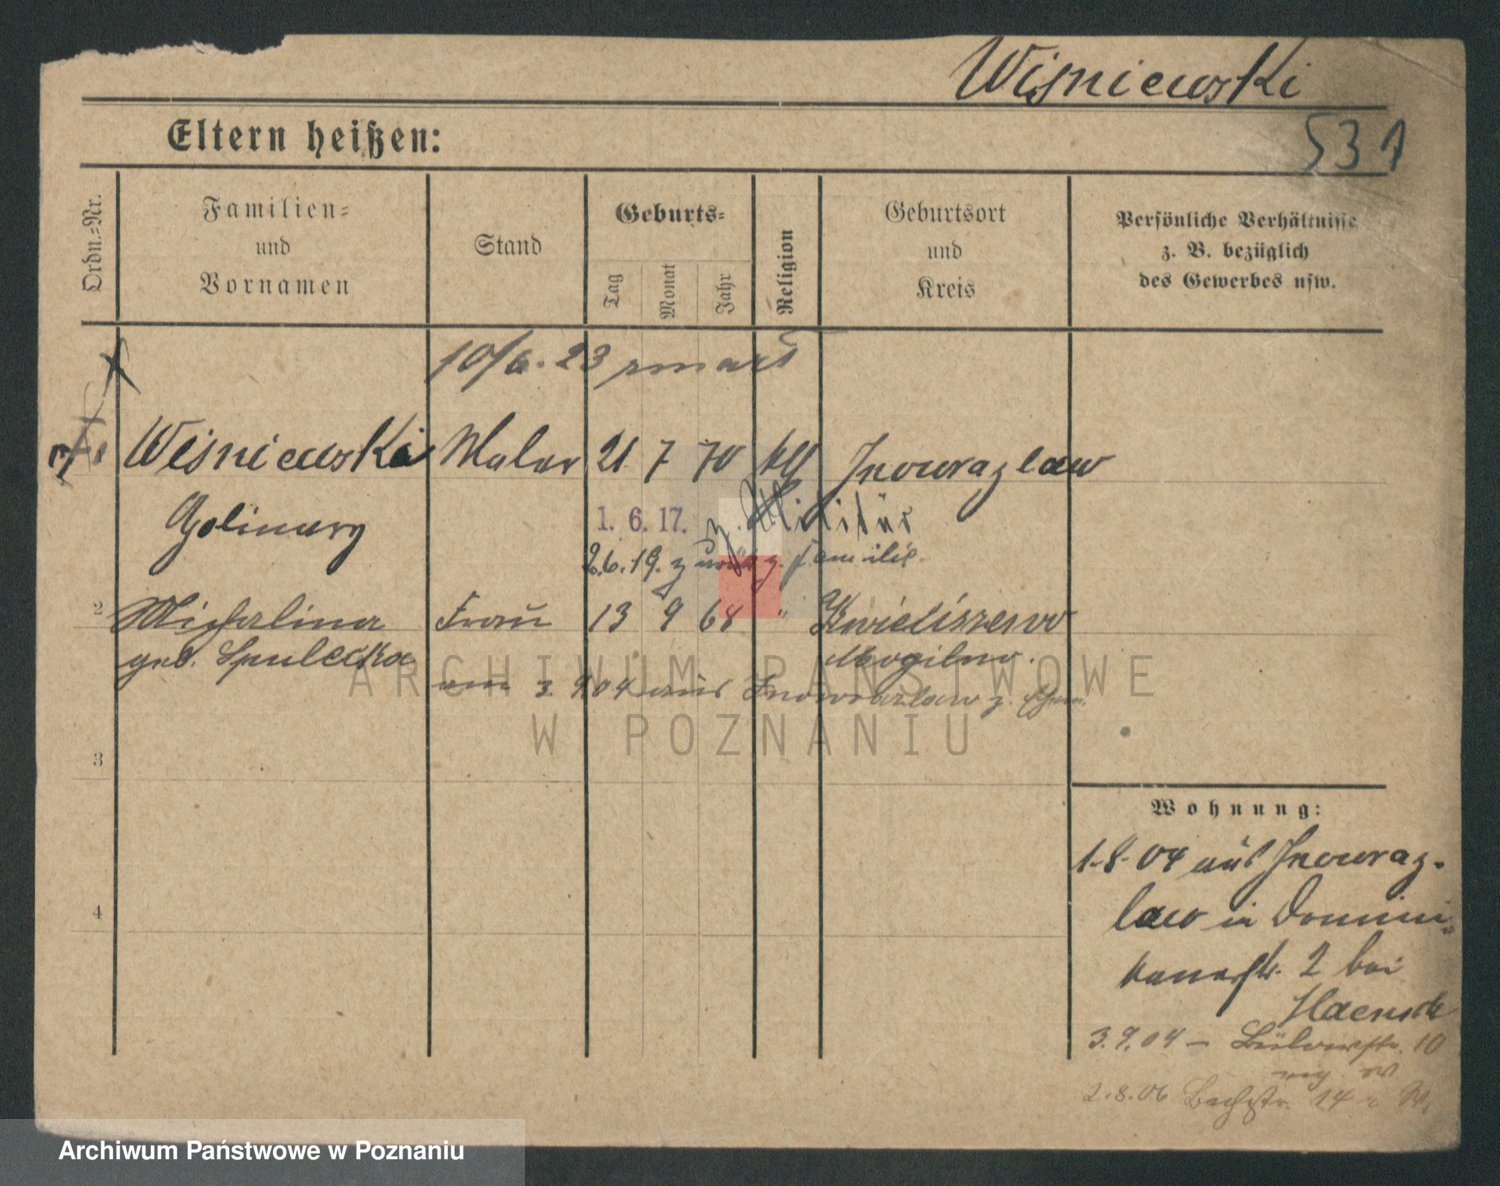 Wiśniewski
531
Eltern heißen:
Ordn.-Nr.
Familien-
und
Vornamen
Stand
Geburts-
Tag
Monat
Jahr
Religion
Geburtsort
und
Kreis
Persönliche Verhältnisse
z. B. bezüglich
des Gewerbes usw.
10/6. 23 zmarł
Wiśniewski Maler 21 7 70 kth Inowrazlaw
1. 6. 17. z. Militär
2.6.19. zurück z. Familie.
2 Michalina Frau 13 9 68 " Kwieciszewo
geb. Mogilno.
am 3.9.04 aus Inowrazlaw z.
3
4
Wohnung:
1.8.04 aus Inowraz-
law in Domini-
kanerstr. 2 bei
3.9.04 – Bülowstr. 10
2.8.06 Bachstr. 14
ARCHIWUM PAŃSTWOWE
W POZNANIU
Archiwum Państwowe w Poznaniu